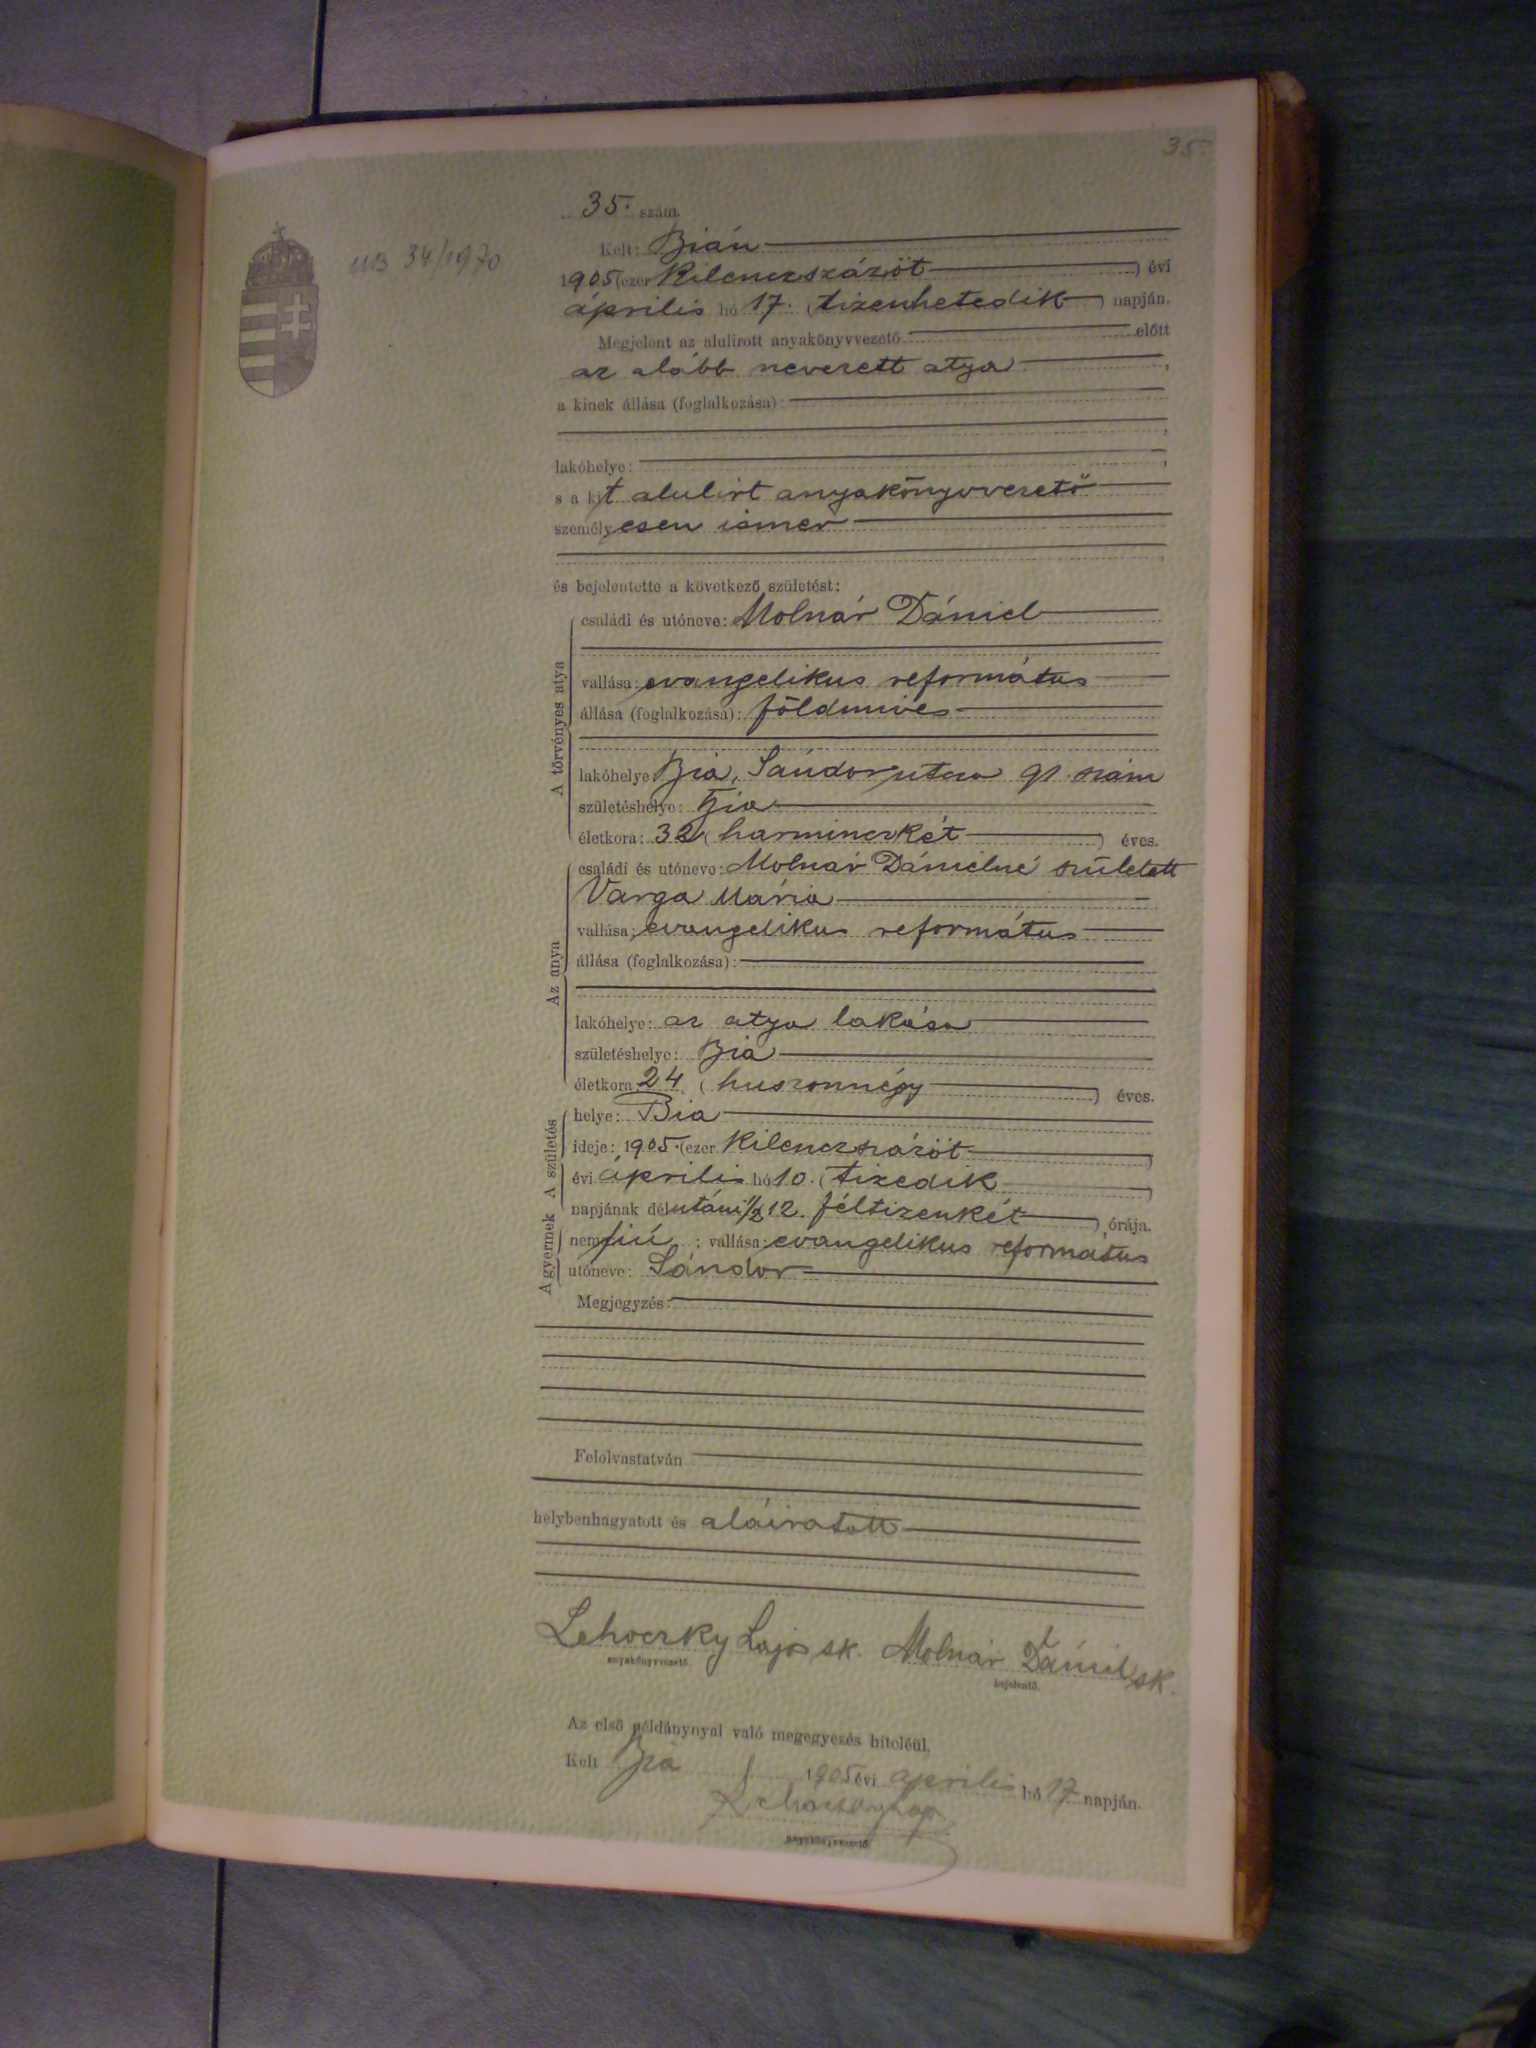 35.
35. szám.
MB 34/1970
Kelt: Bián
1905 (ezer kilenczszázöt) évi
április hó 17. (tizenhetedik) napján.
Megjelent az alulirott anyakönyvvezető előtt
az alább nevezett atya,
a kinek állása (foglalkozása):
lakóhelye:
s a kit alulirt anyakönyvvezető
személyesen ismer
és bejelentette a következő születést:
A törvényes atya
családi és utóneve: Molnár Dániel
vallása: evangelikus református
állása (foglalkozása): földmives
lakóhelye Bia, Sándor utca 91. szám
születéshelye: Bia
életkora: 32 (harminczkét) éves.
Az anya
családi és utóneve: Molnár Dánielné született
Varga Mária
vallása: evangelikus református
állása (foglalkozása):
lakóhelye: az atya lakása
születéshelye: Bia
életkora 24 (huszonnégy) éves.
A születés
helye: Bia
ideje: 1905. (ezer kilenczszázöt)
évi április hó 10. (tizedik)
napjának délutáni 1/2 12. féltizenkét) órája.
A gyermek
neme fiú; vallása: evangelikus református
utóneve: Sándor
Megjegyzés:
Felolvastatván
helybenhagyatott és aláiratott
Lehoczky Lajos sk. Molnár Dániel sk.
anyakönyvvezető. bejelentő.
Az első példánynyal való megegyezés hiteléül.
Kelt Bia 1905 évi április hó 17 napján.
Lehoczky Lajos
anyakönyvvezető